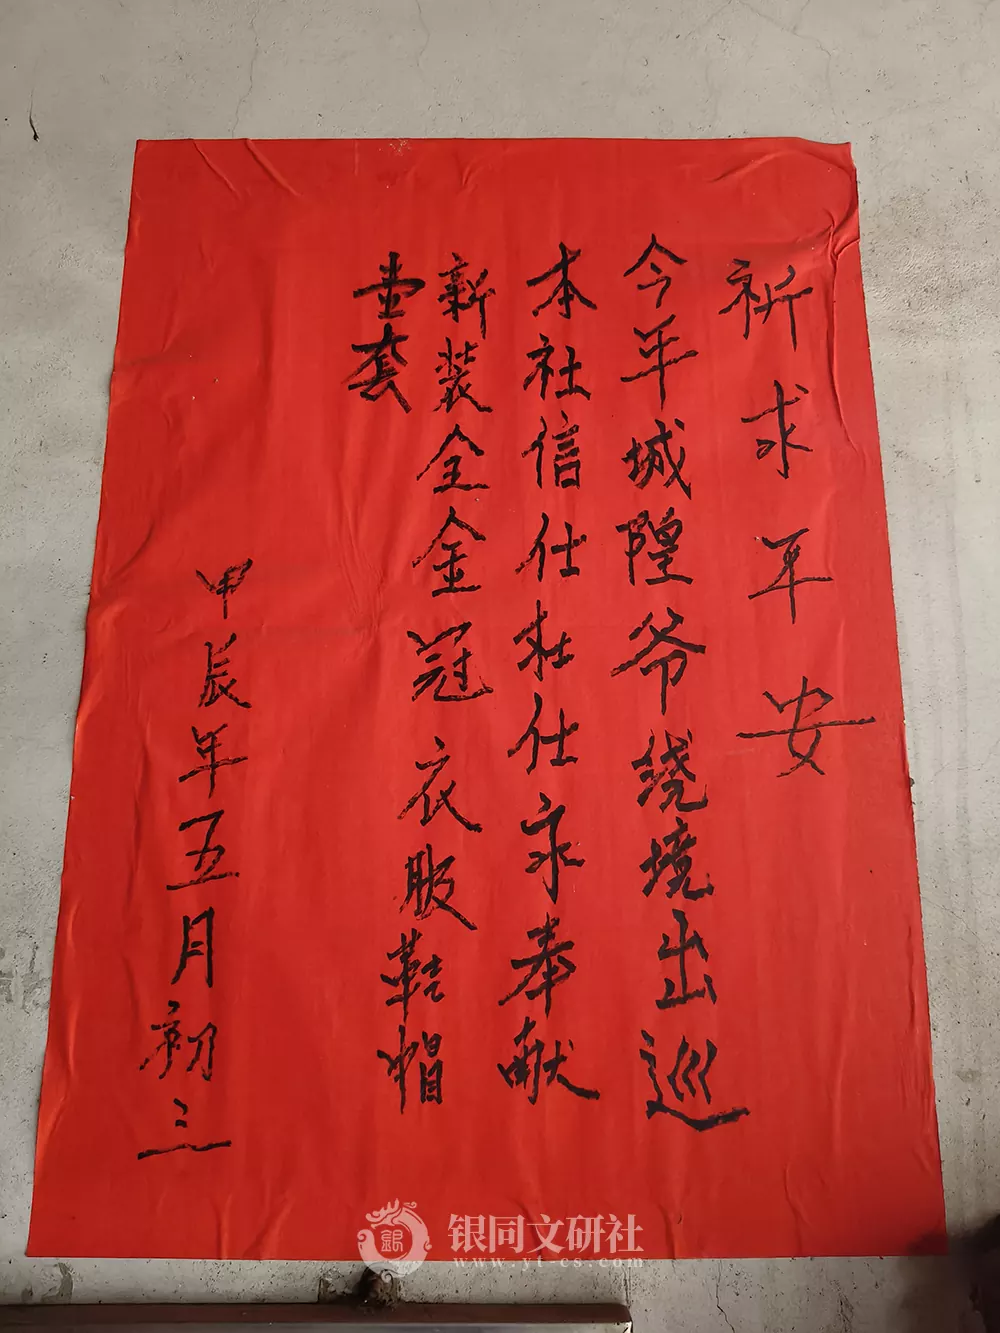 祈求平安
今年城隍爷绕境出巡
本社信仕杜仕奉献
新装全金冠衣服鞋帽
壹套
甲辰年五月初三
銀
银同文研社
www.yt-cs.com